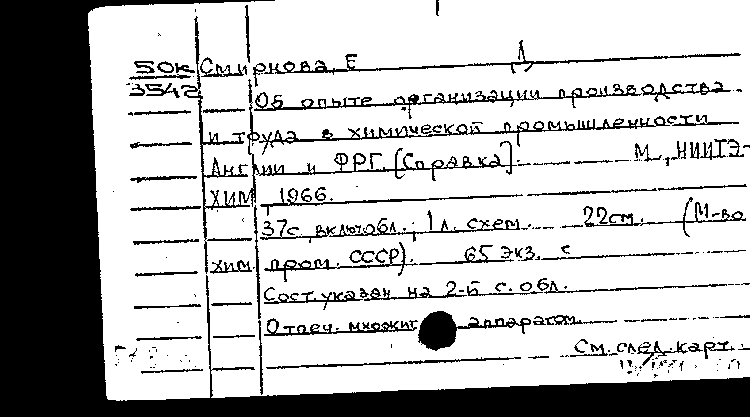 50к Смирнова, Е Л
3542 Об опыте организации производства
и труда в химической промышленности
Англии и ФРГ. [Справка]. М., НИИТЭ-
ХИМ, 1966.
37с. включ.обл.; 1 л. схем. 22см. (М-во
хим. пром. СССР). 65 экз. с
Сост. указан на 2-й с. обл.
Отпеч. множит. аппаратом.
См. след. карт.